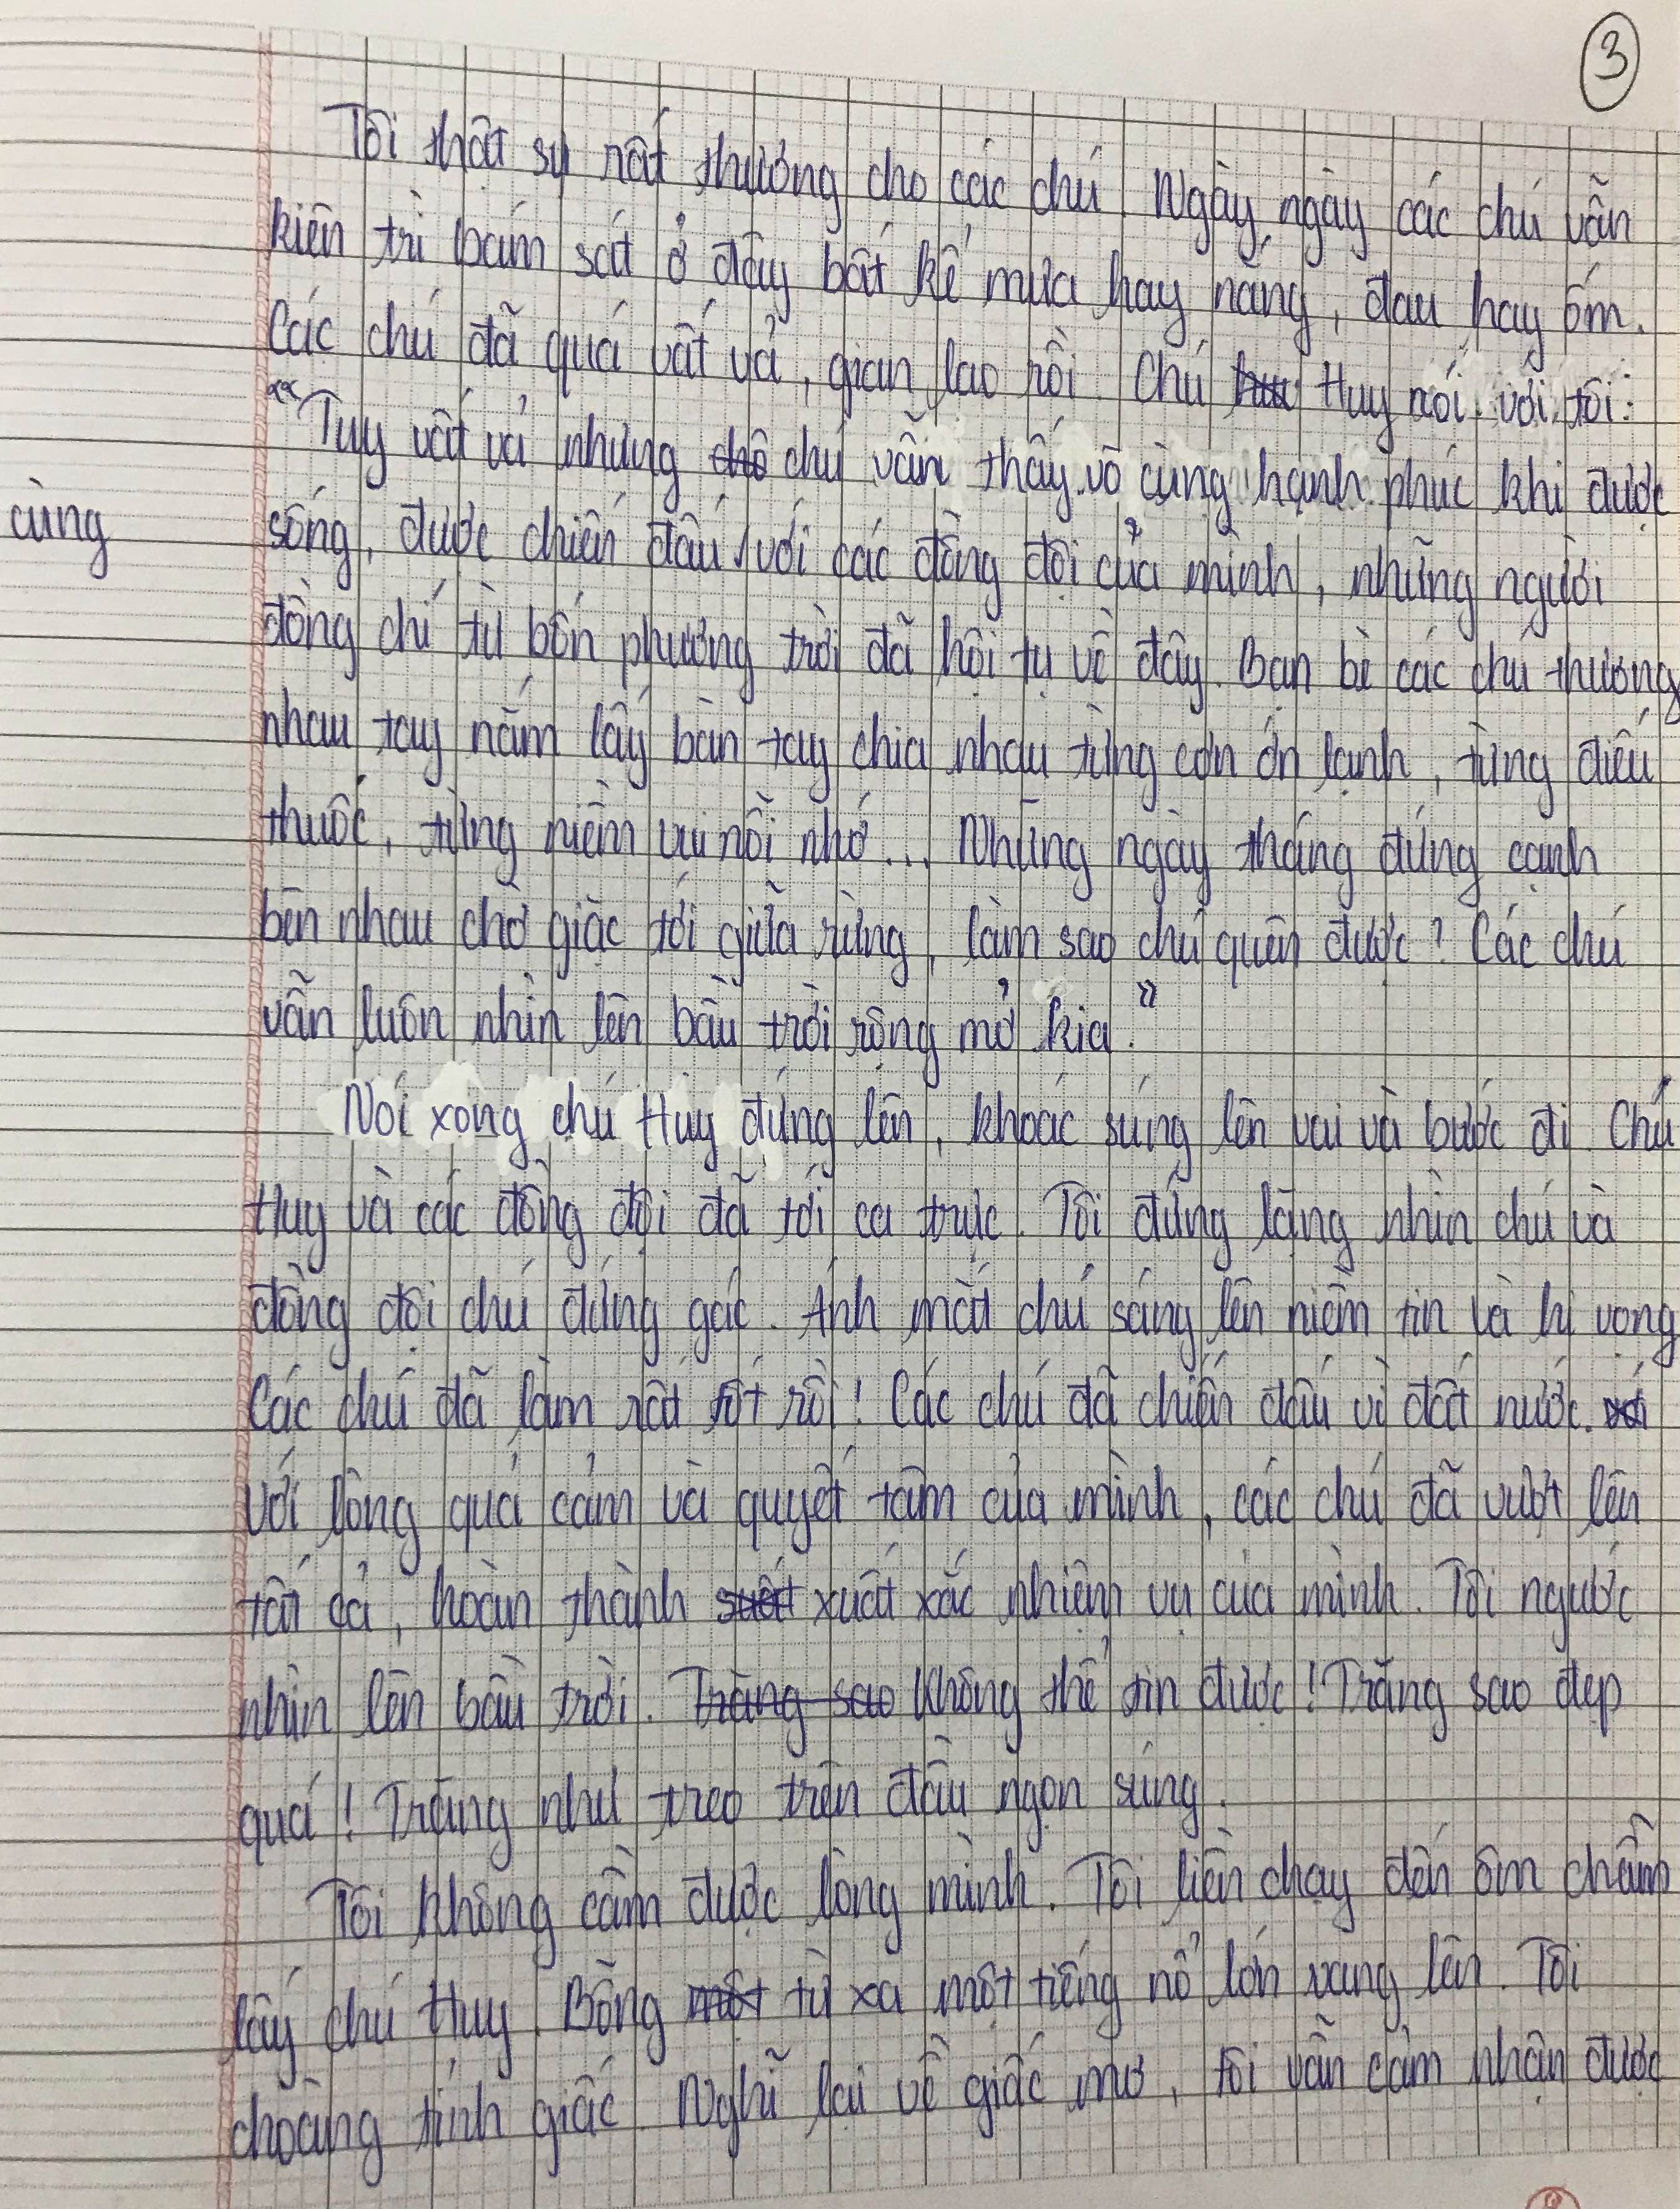 3
Tôi thật sự rất thương cho các chú. Ngày ngày các chú vẫn
kiên trì bám sát ở đây bất kể mưa hay nắng, đau hay ốm.
Các chú đã quá vất vả, gian lao rồi. Chú Huy nói với tôi:
"Tuy vất vả nhưng chú vẫn thấy vô cùng hạnh phúc khi được
sống, được chiến đấu cùng với các đồng đội của mình, những người
đồng chí từ bốn phương trời đã hội tụ về đây. Bạn bè các chú thương
nhau tay nắm lấy bàn tay chia nhau từng cơn ớn lạnh, từng điếu
thuốc, từng niềm vui nỗi nhớ... Những ngày tháng đứng cạnh
bên nhau chờ giặc tới giữa rừng, làm sao chú quên được? Các chú
vẫn luôn nhìn lên bầu trời rộng mở kia."
Nói xong chú Huy đứng lên, khoác súng lên vai và bước đi. Chú
Huy và các đồng đội đã tới ca trực. Tôi đứng lặng nhìn chú và
đồng đội chú đứng gác. Ánh mắt chú sáng lên niềm tin và hi vọng
Các chú đã làm rất tốt rồi! Các chú đã chiến đấu vì đất nước.
với lòng quả cảm và quyết tâm của mình, các chú đã vượt lên
tất cả, hoàn thành xuất xắc nhiệm vụ của mình. Tôi ngước
nhìn lên bầu trời. Trăng sao Không thể tin được! Trăng sao đẹp
quá! Trăng như treo trên đầu ngọn súng.
Tôi không cầm được lòng mình. Tôi liền chạy đến ôm chầm
lấy chú Huy. Bỗng một từ xa một tiếng nổ lớn vang lên. Tôi
choàng tỉnh giấc. Nghĩ lại về giấc mơ, tôi vẫn cảm nhận được